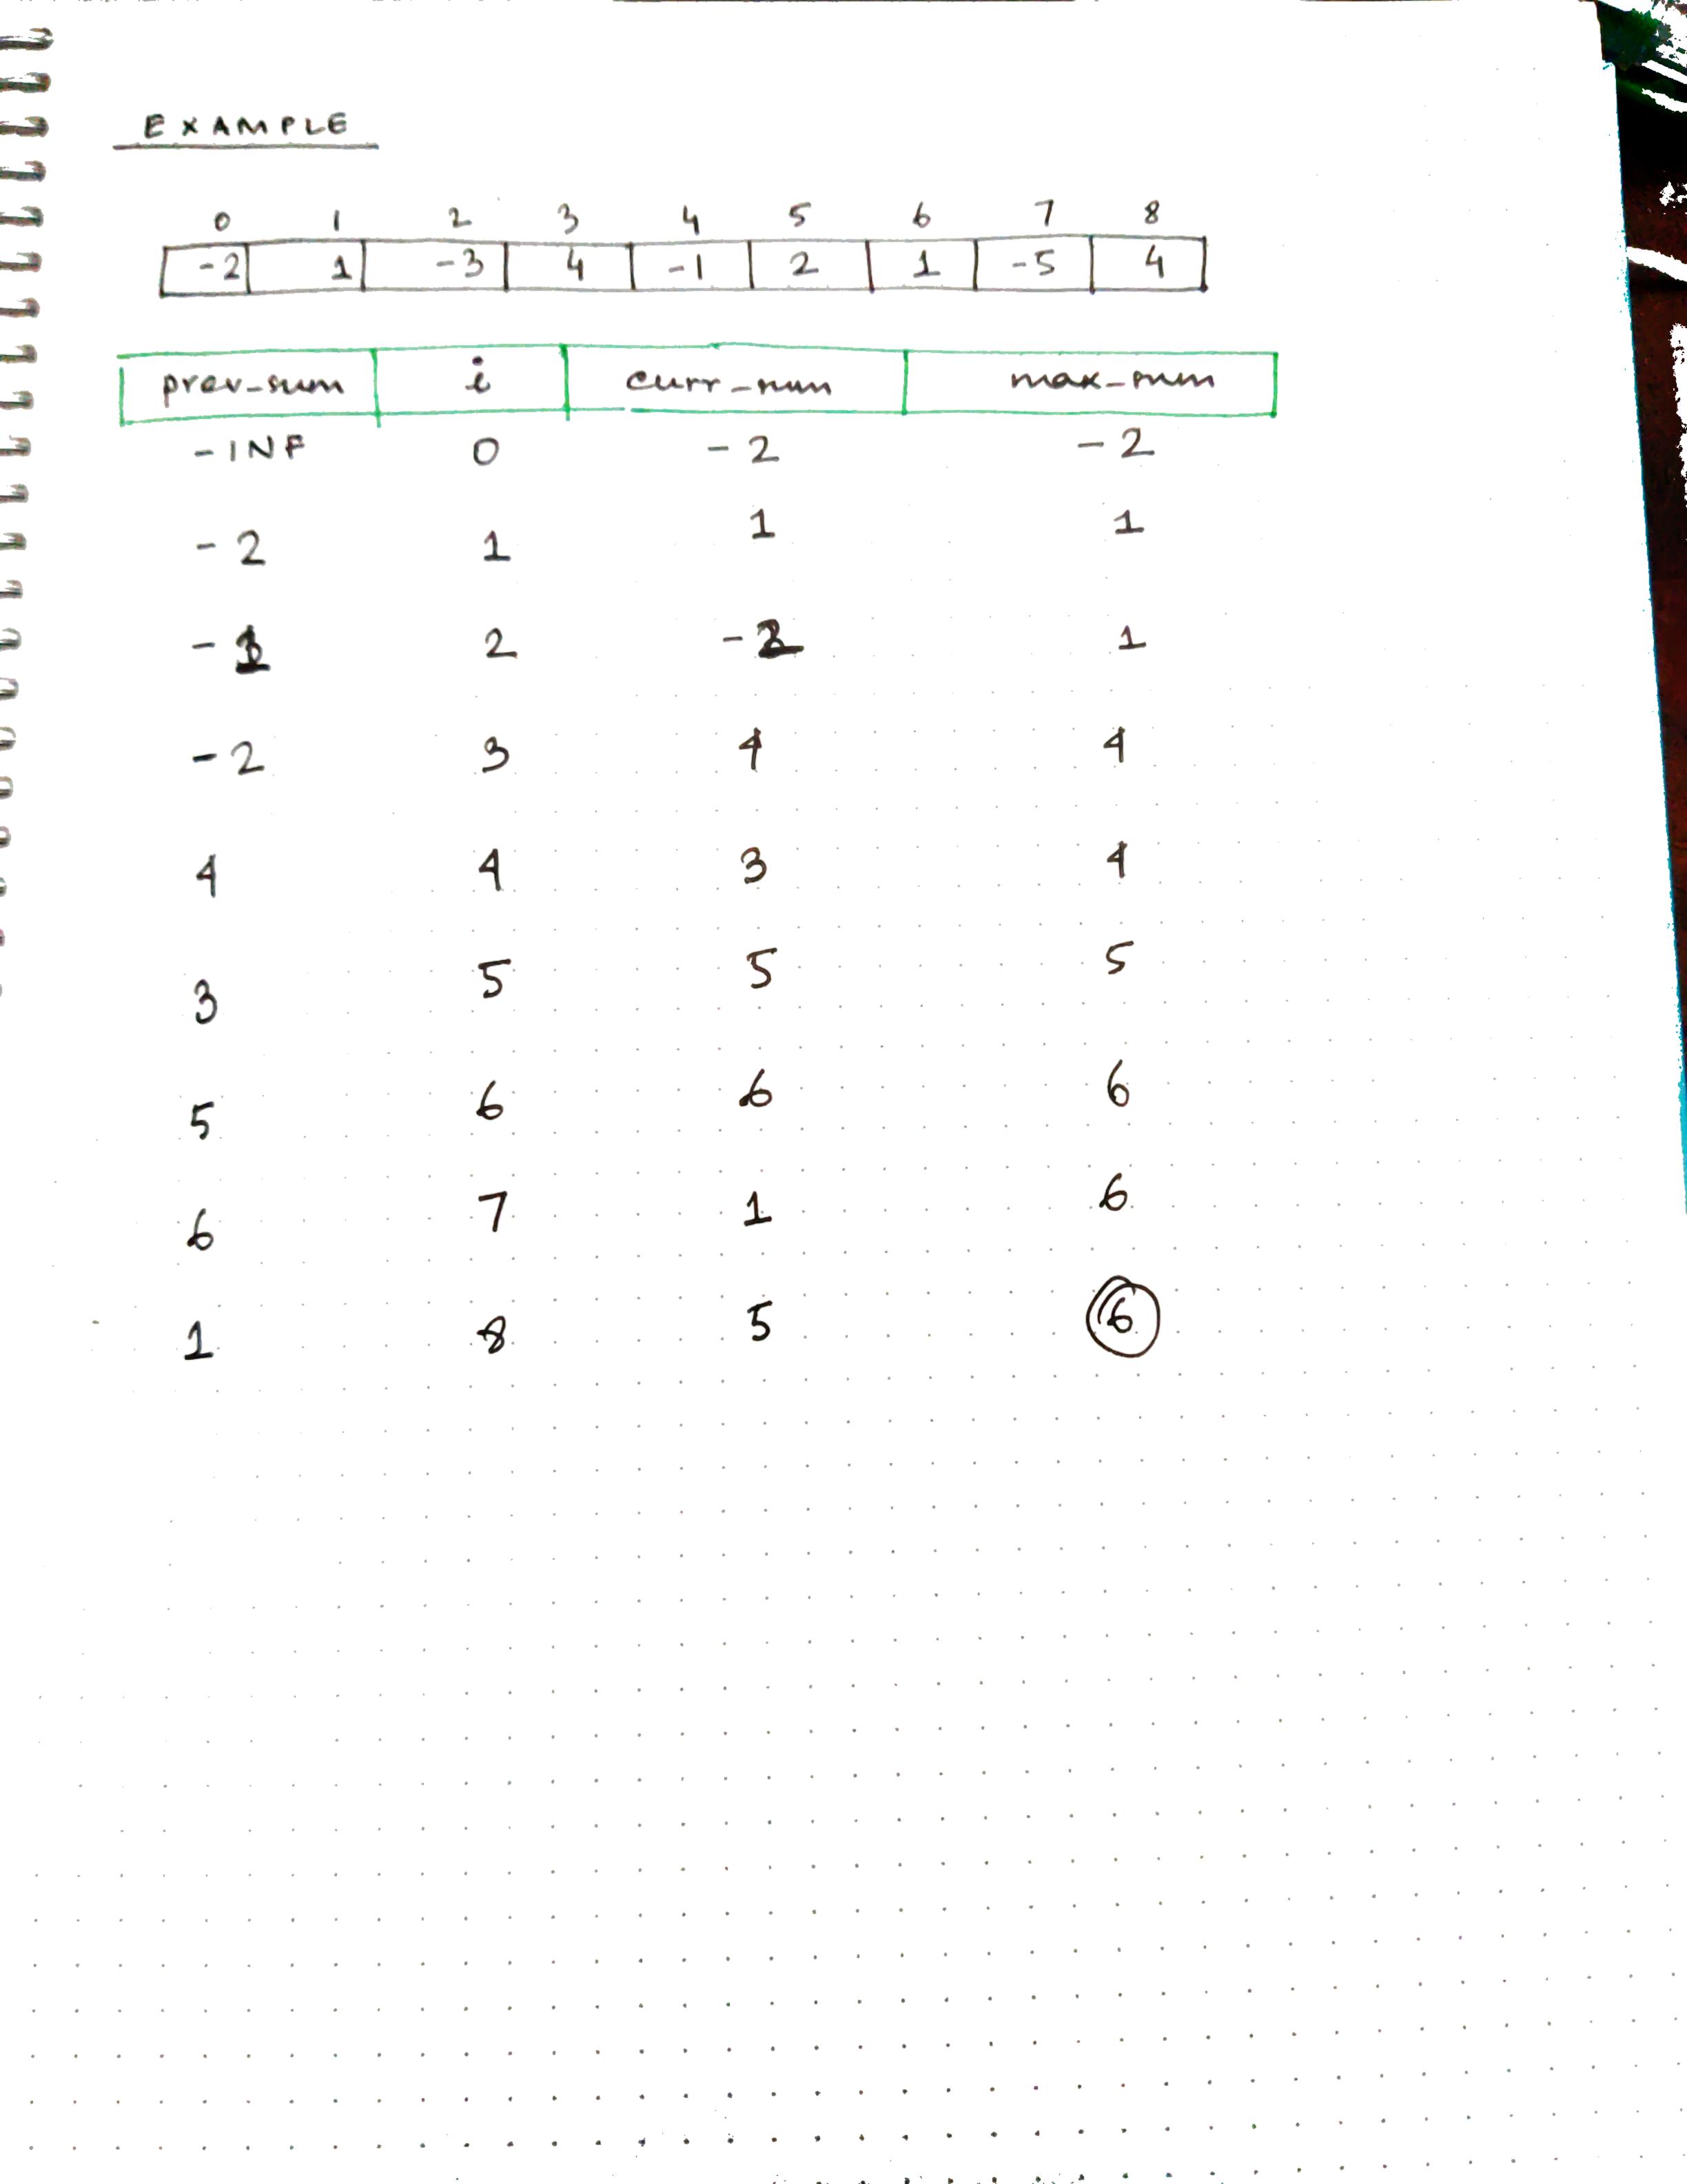 EXAMPLE
0 1 2 3 4 5 6 7 8
-2 1 -3 4 -1 2 1 -5 4
prev_sum i curr_sum max_sum
-INF 0 -2 -2
-2 1 1 1
2 1
-2 3 4 4
4 4 3 4
3 5 5 5
5 6 6 6
6 7 1 6
1 8 5 6